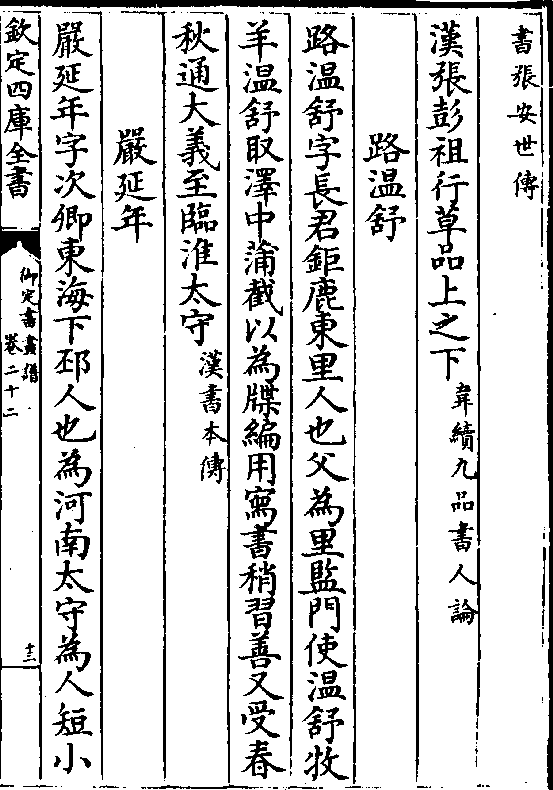 書張安世傳
漢張彭祖行草品上之下韋續九品書人論
路温舒
路温舒字長君鉅鹿東里人也父為里監門使温舒牧
羊温舒取澤中蒲截以為牒編用寫書稍習善又受春
秋通大義至臨淮太守漢書本傳
嚴延年
嚴延年字次卿東海下邳人也為河南太守為人短小
欽定四庫全書
御定書畫譜
卷二十二
十三